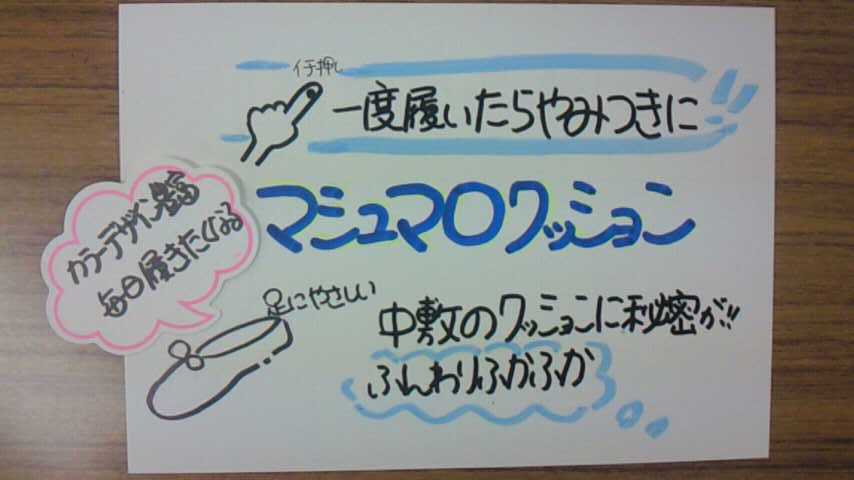 イチ押し
一度履いたらやみつきに!!
マシュマロクッション
カラーデザイン豊富
毎日履きたくなる
足にやさしい
中敷のクッションに秘密が!!
ふんわりふかふか